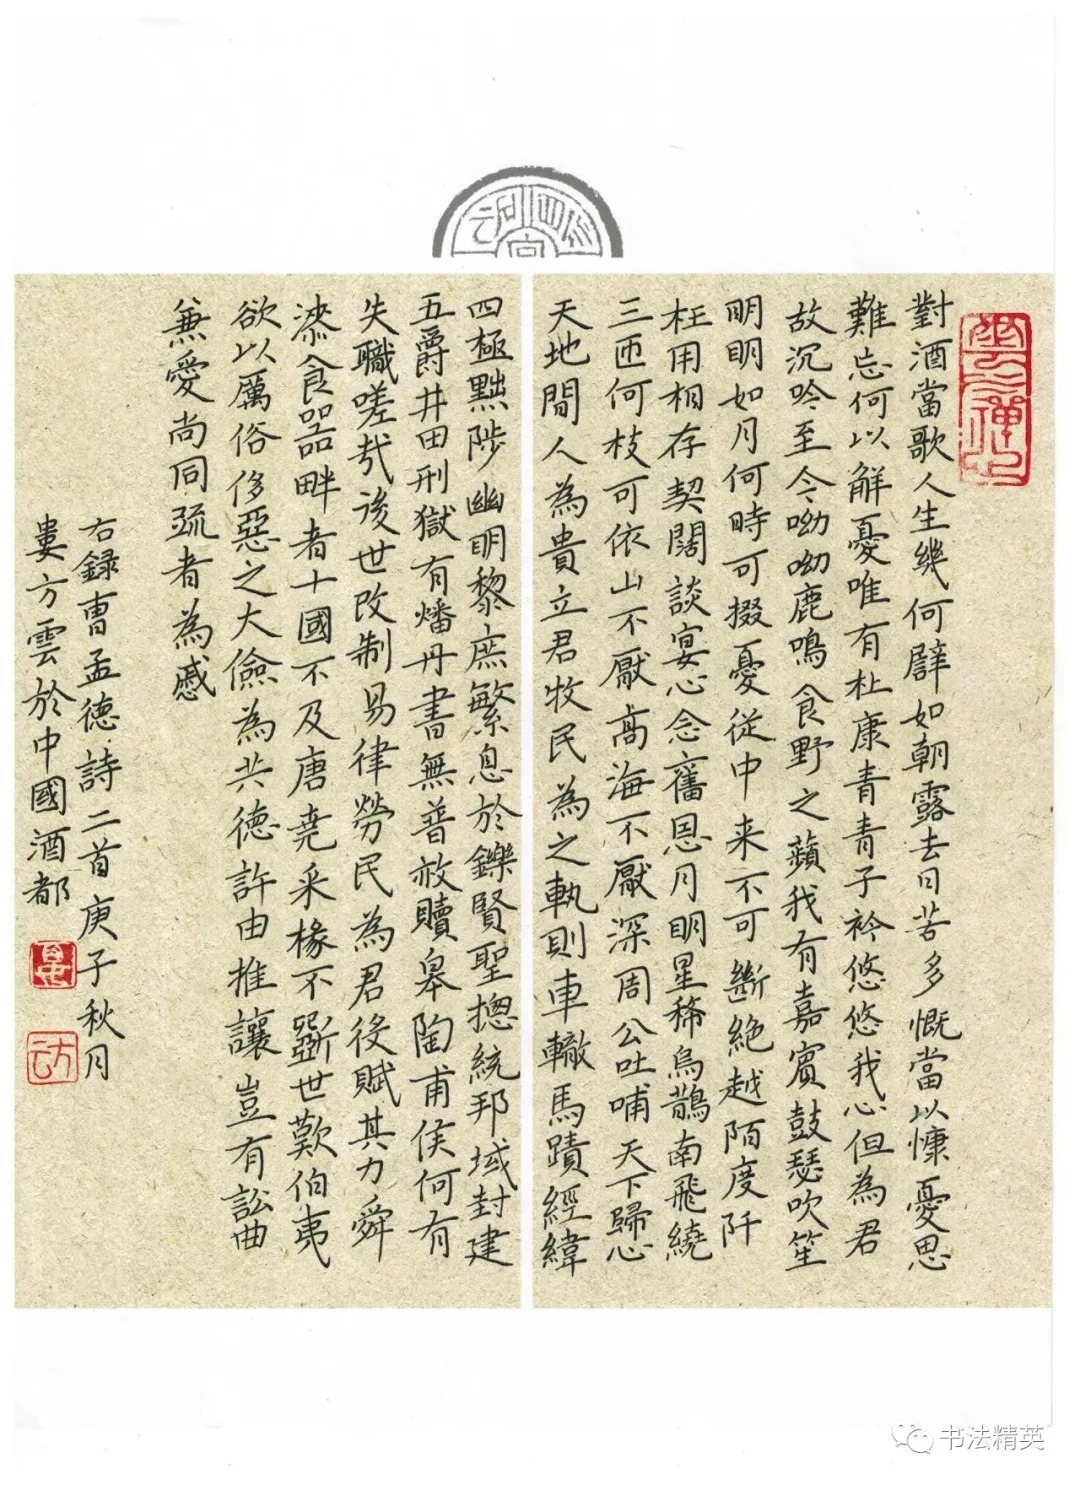 對酒當歌人生幾何譬如朝露去日苦多慨當以慷憂思
難忘何以解憂唯有杜康青青子衿悠悠我心但為君
故沉吟至今呦呦鹿鳴食野之蘋我有嘉賓鼓瑟吹笙
明明如月何時可掇憂從中来不可斷絕越陌度阡
枉用相存契闊談宴心念舊恩月明星稀烏鵲南飛繞
三匝何枝可依山不厭高海不厭深周公吐哺天下歸心
天地間人為貴立君牧民為之執則車轍馬蹟經緯
四極黜陟幽明黎庶繁息於鑠賢聖摠統邦域封建
五爵井田刑獄有燔丹書無普赦贖皋陶甫侯何有
失職嗟哉後世改制易律勞民為君役賦其力舜
漆食器畔者十國不及唐堯采椽不斲世歎伯夷
欲以厲俗侈惡之大儉為共德許由推讓豈有訟曲
兼愛尚同疏者為慼
右録曹孟德詩二首庚子秋月
婁方雲於中國酒都
书法精英